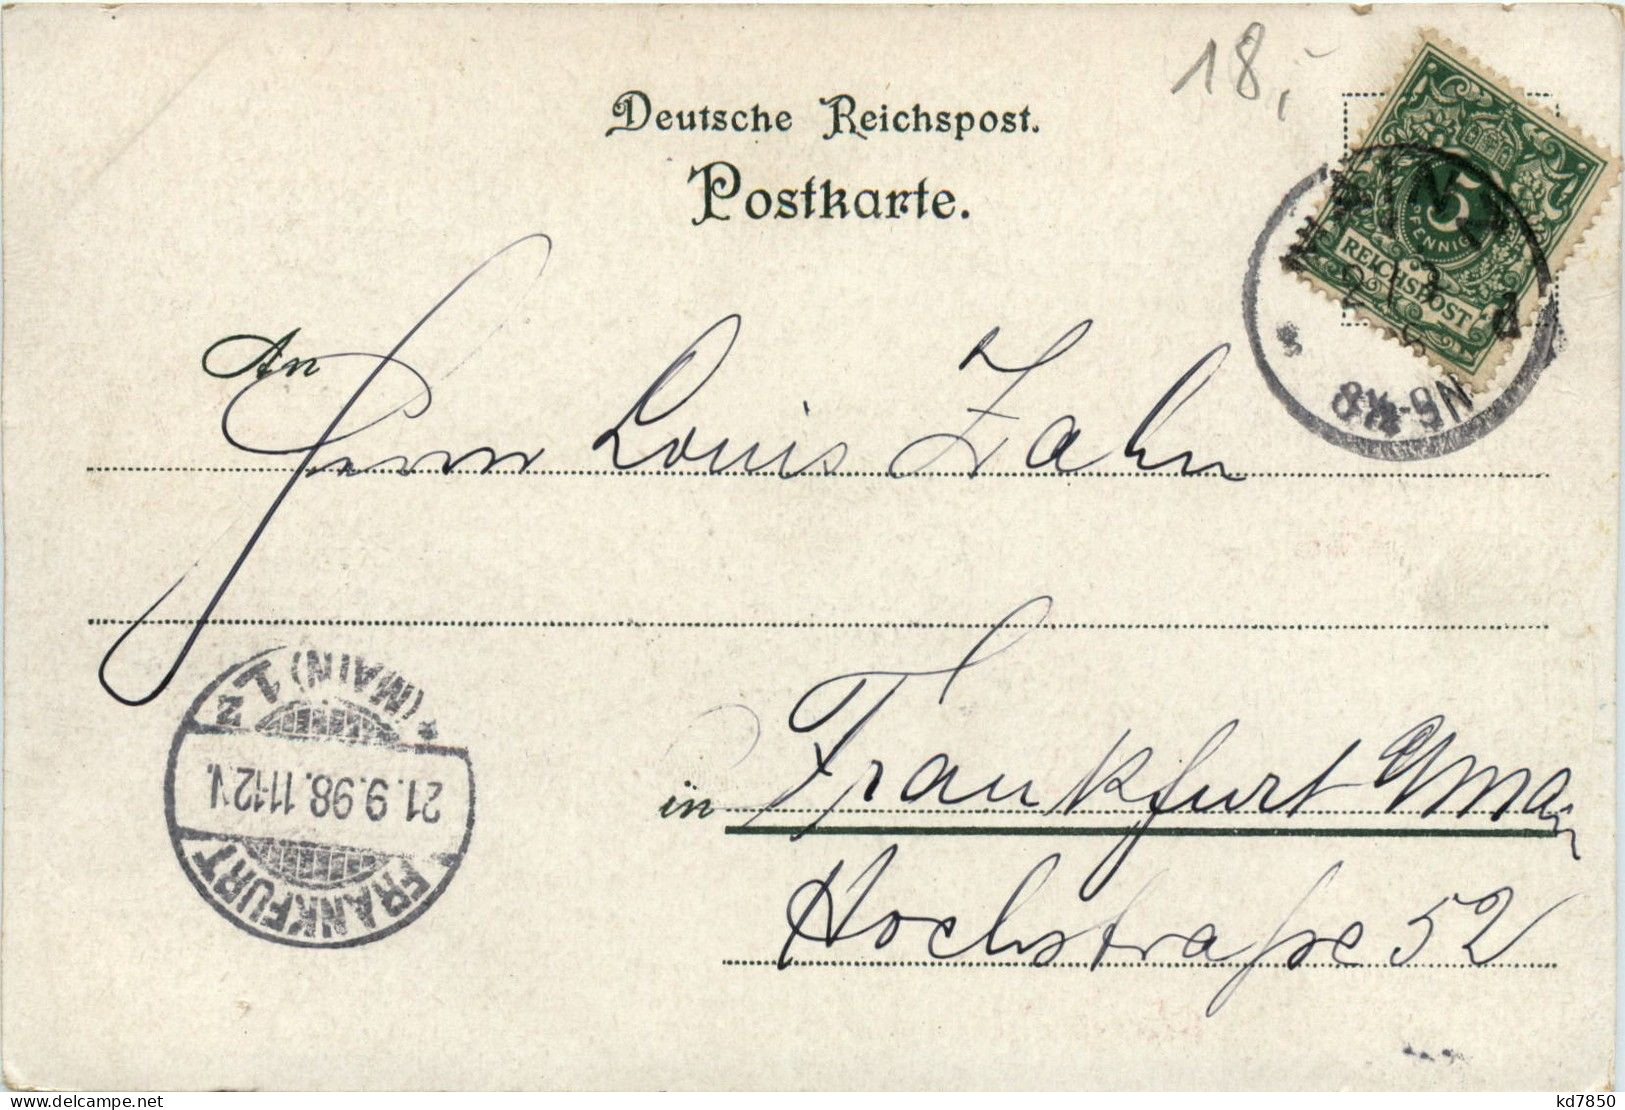 18,-
Deutsche Reichspost.
Postkarte.
5
PFENNIG
REICHSPOST
8½-9N
An
Herrn Louis Zahn
in Frankfurt a/Main
Hochstraße 52
FRANKFURT
21.9.98.11-12V.
*(MAIN) 1 z
kd7850